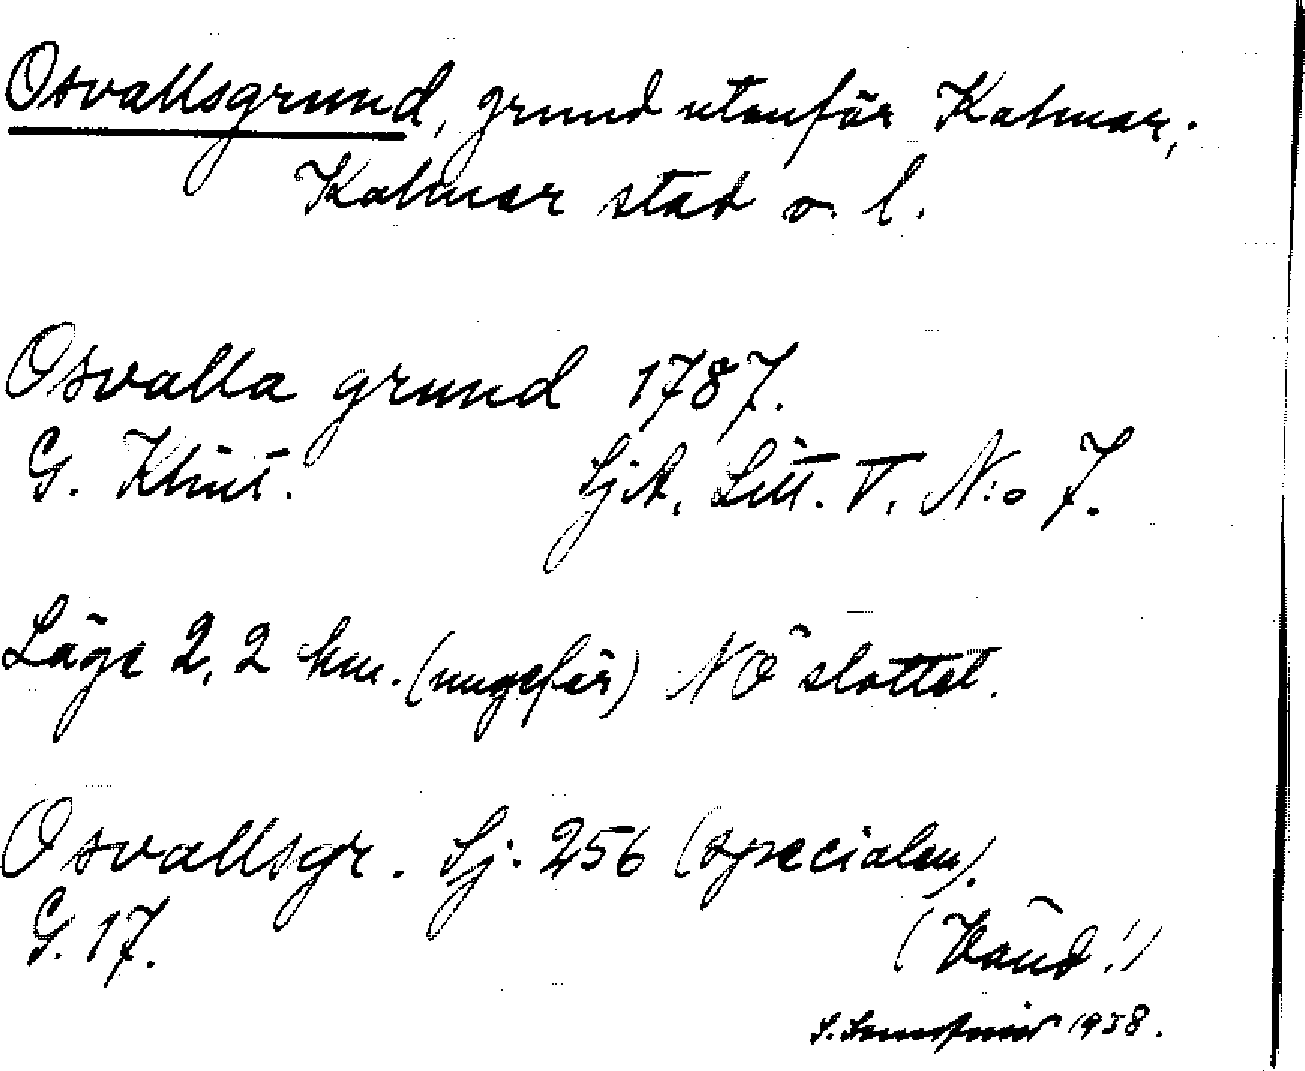 Osvallsgrund, grund utanför Kalmar,;
Kalmar stad o. l.
Osvalla grund 1787.
G. Klint. SjA. Litt. T. N:o 7.
Läge 2,2 km. (ungefär) NÖ slottet.
Osvallsgr. Sj. 256 (specialen).
G. 17.
(Vänd!)
S. 1938.